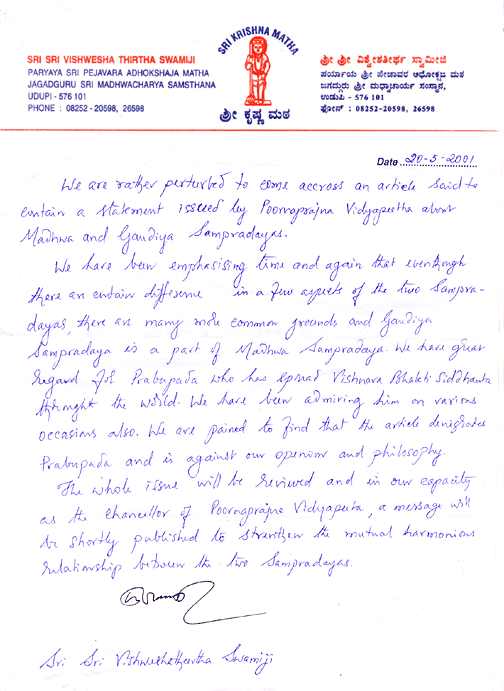 SRI KRISHNA MATHA
SRI SRI VISHWESHA THIRTHA SWAMIJI
PARYAYA SRI PEJAVARA ADHOKSHAJA MATHA
JAGADGURU SRI MADHWACHARYA SAMSTHANA
UDUPI - 576 101
PHONE : 08252 - 20598, 26598
ಶ್ರೀ ಕೃಷ್ಣ ಮಠ
ಶ್ರೀ ಶ್ರೀ ವಿಶ್ವೇಶತೀರ್ಥ ಸ್ವಾಮೀಜಿ
ಪರ್ಯಾಯ ಶ್ರೀ ಪೇಜಾವರ ಅಧೋಕ್ಷಜ ಮಠ
ಜಗದ್ಗುರು ಶ್ರೀ ಮಧ್ವಾಚಾರ್ಯ ಸಂಸ್ಥಾನ,
ಉಡುಪಿ - 576 101
ಫೋನ್ : 08252 - 20598, 26598
Date 20-5-2001
We are rather perturbed to come accross an article said to
contain a statement issued by Poornaprajna Vidyapeetha about
Madhwa and Gaudiya Sampradayas.
We have been emphasising time and again that eventhough
there are certain difference in a few aspects of the two Sampra-
dayas, there are many more common grounds and Gaudiya
Sampradaya is a part of Madhwa Sampradaya. We have great
regard for Prabupada who has spread Vishnava Bhakti Siddhanta
throught the world. We have been admiring him on various
occasions also. We are pained to find that the article denigrates
Prabupada and is against our openion and philosophy.
The whole issue will be reviewed and in our capacity
as the chancellor of Poornaprajna Vidyapeeta, a message will
be shortly published to strenthen the mutual harmonious
relationship between the two Sampradayas.
Sri Sri Vishweshatheertha Swamiji